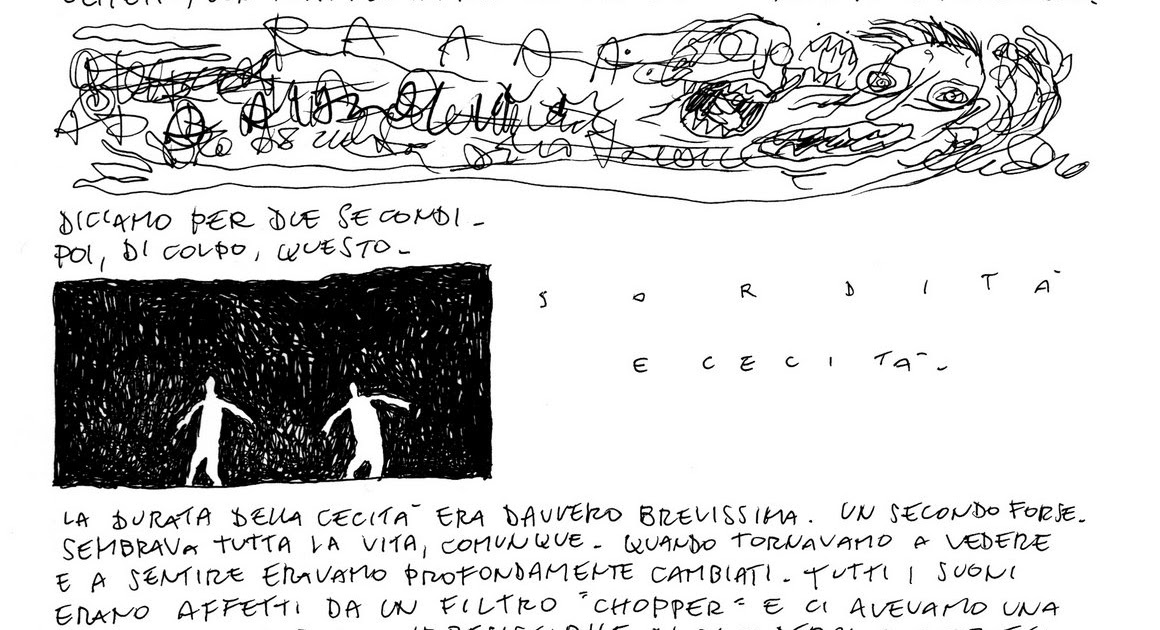 R A A A A
DICIAMO PER DUE SECONDI -
POI, DI COLPO, QUESTO -
S O R D I T À
E C E C I T À -
LA DURATA DELLA CECITÀ ERA DAVVERO BREVISSIMA. UN SECONDO FORSE.
SEMBRAVA TUTTA LA VITA, COMUNQUE - QUANDO TORNAVAMO A VEDERE
E A SENTIRE ERAVAMO PROFONDAMENTE CAMBIATI - TUTTI I SUONI
ERANO AFFETTI DA UN FILTRO "CHOPPER" E CI AVEVAMO UNA